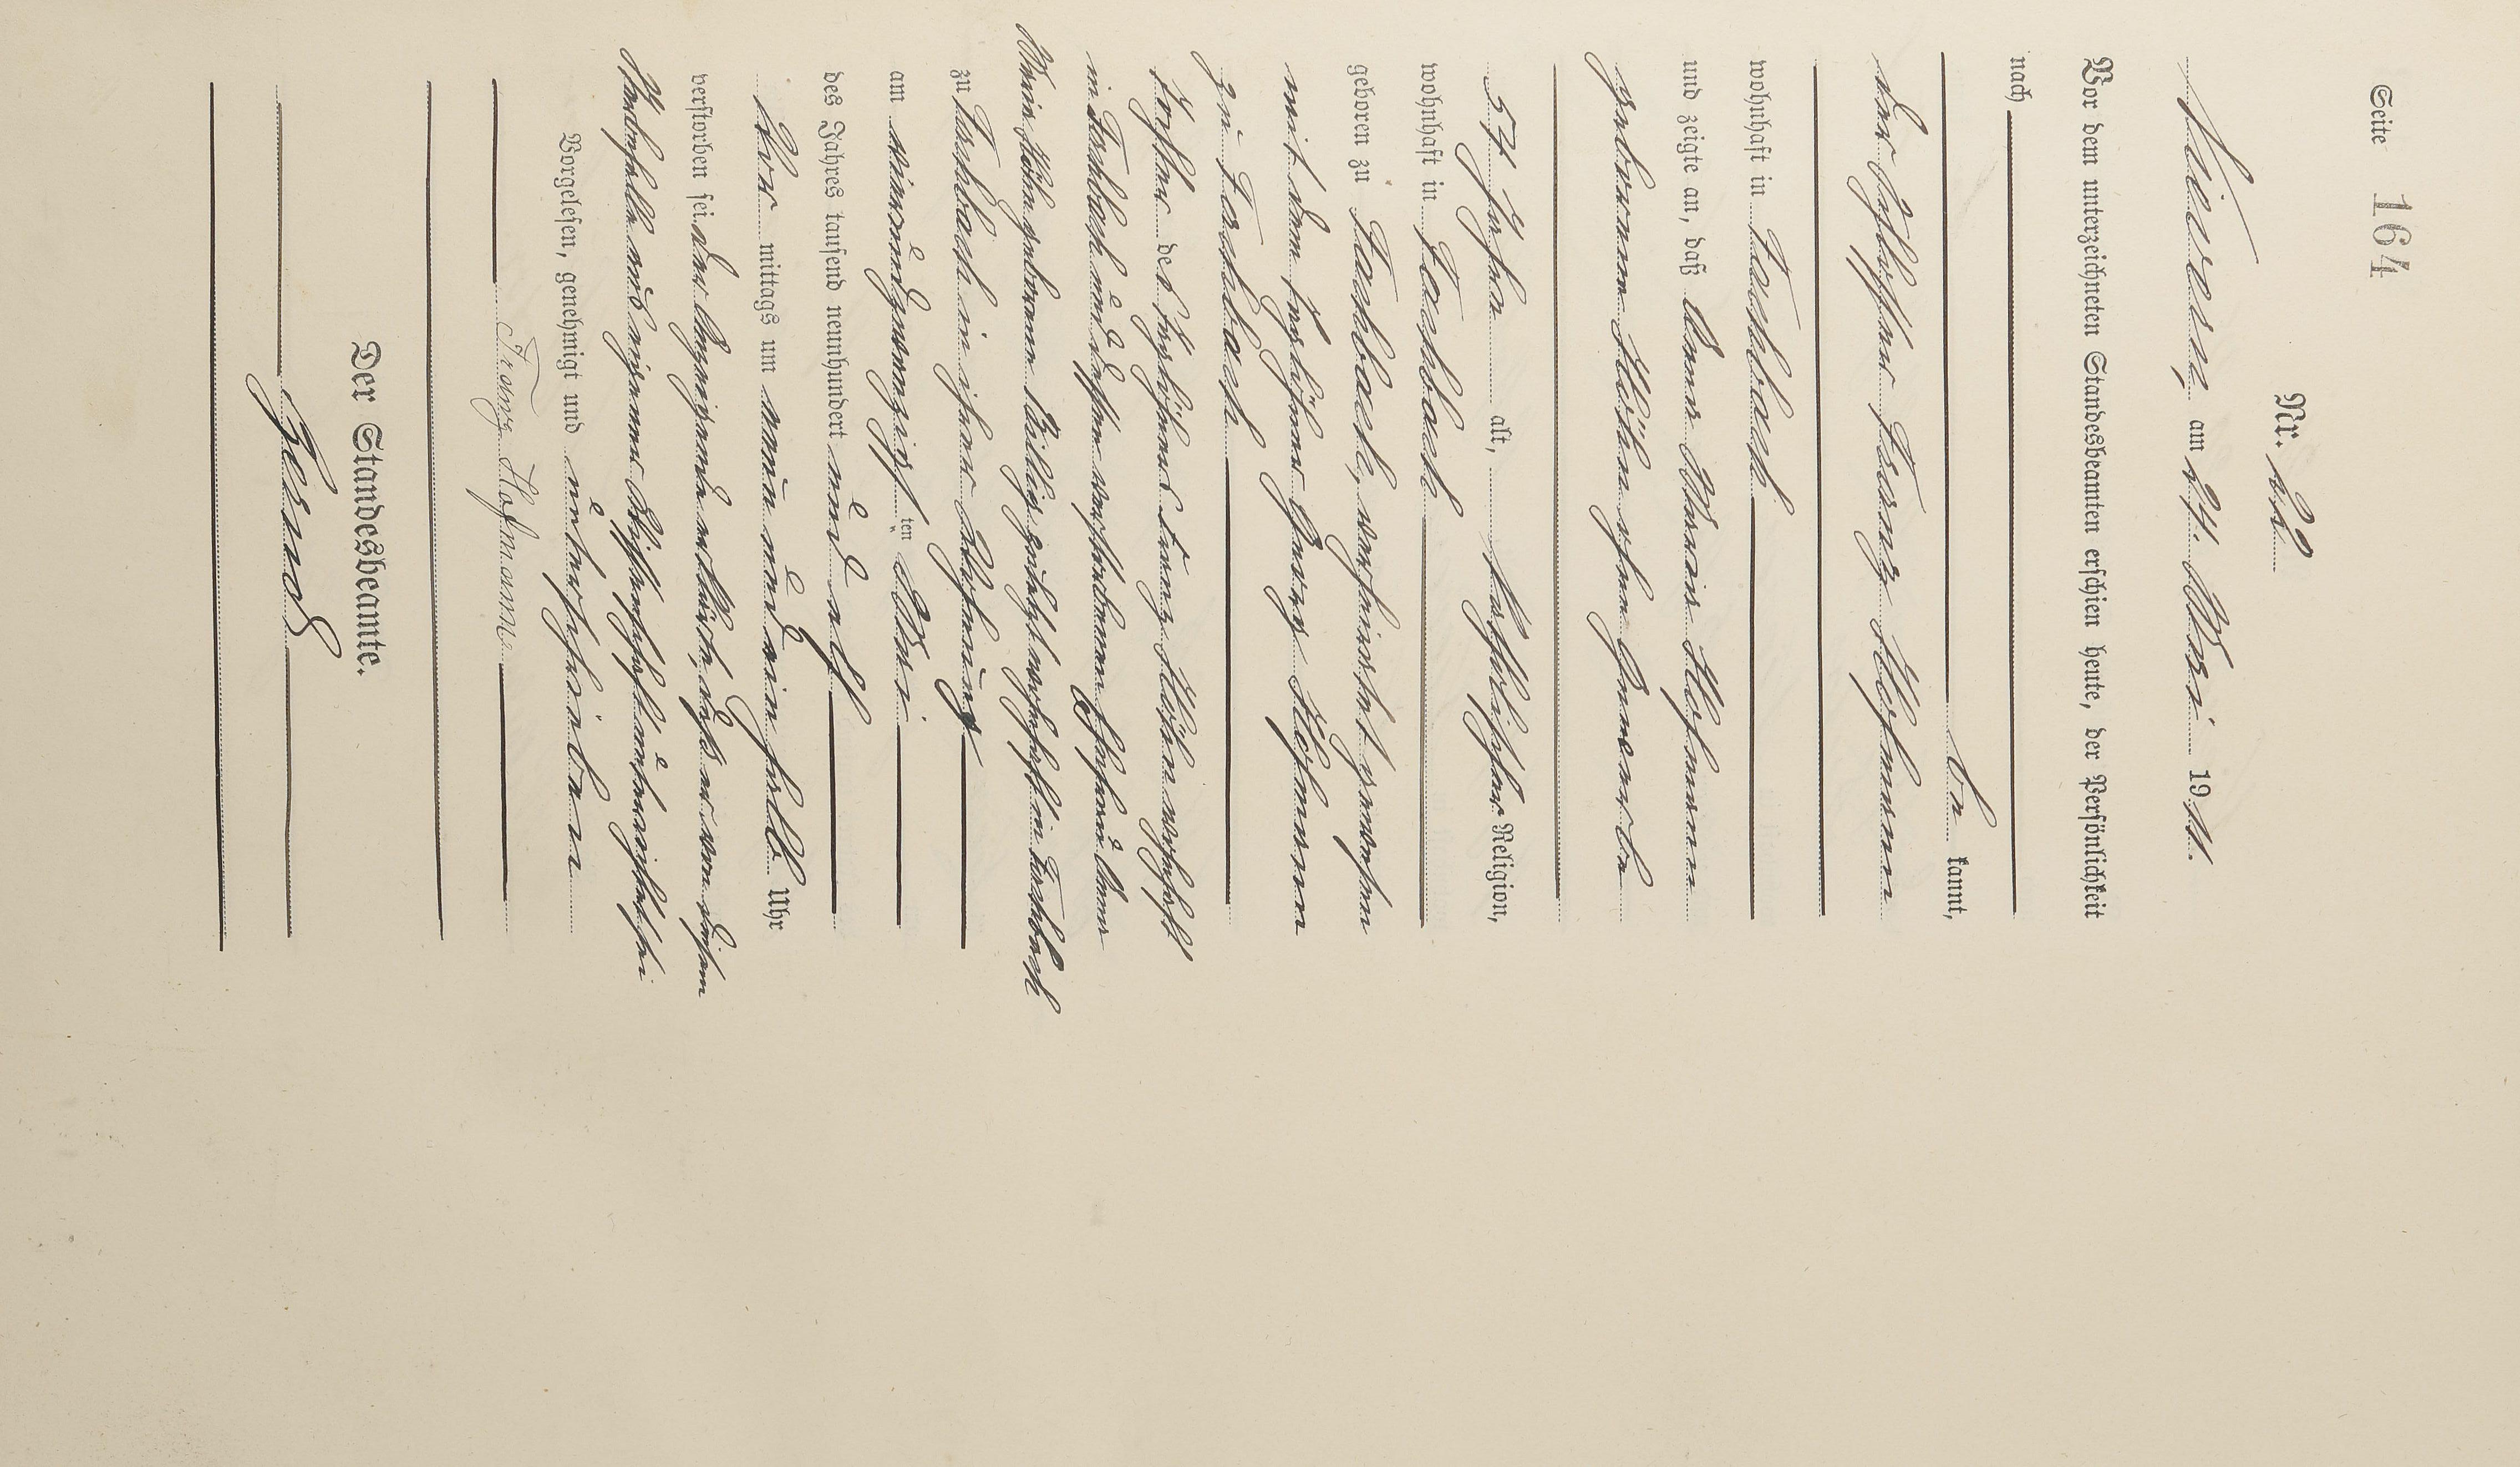 Seite 164
Nr. 22
Nievern, am 24. Mai 1911.
Vor dem unterzeichneten Standesbeamten erschien heute, der Persönlichkeit
nach
be kannt,
der Schlosser Franz Hofmann
wohnhaft in Fachbach
und zeigte an, daß Anna Maria Hofmann
geborenen Höhn ohne Gewerbe
57 Jahre alt, katholischer Religion,
wohnhaft in Fachbach
geboren zu Fachbach, verheiratet gewesen
mit dem Taglöhner Georg Hofmann
zu Fachbach
Tochter des Taglöhners Franz Höhn wohnhaft
in Fachbach und dessen verstorbenen Ehefrau Anna
Maria Höhn geborene Billig zuletzt wohnhaft in Fachbach
zu Fachbach in ihrer Wohnung
am vierundzwanzigsten Mai
des Jahres tausend neunhundert und elf
Vor mittags um neun und ein halb Uhr
verstorben sei. Der Anzeigende erklärte, daß er von diesem
Sterbefalle aus eigener Wissenschaft unterrichtet sei.
Vorgelesen, genehmigt und unterschrieben
Franz Hofmann
Der Standesbeamte.